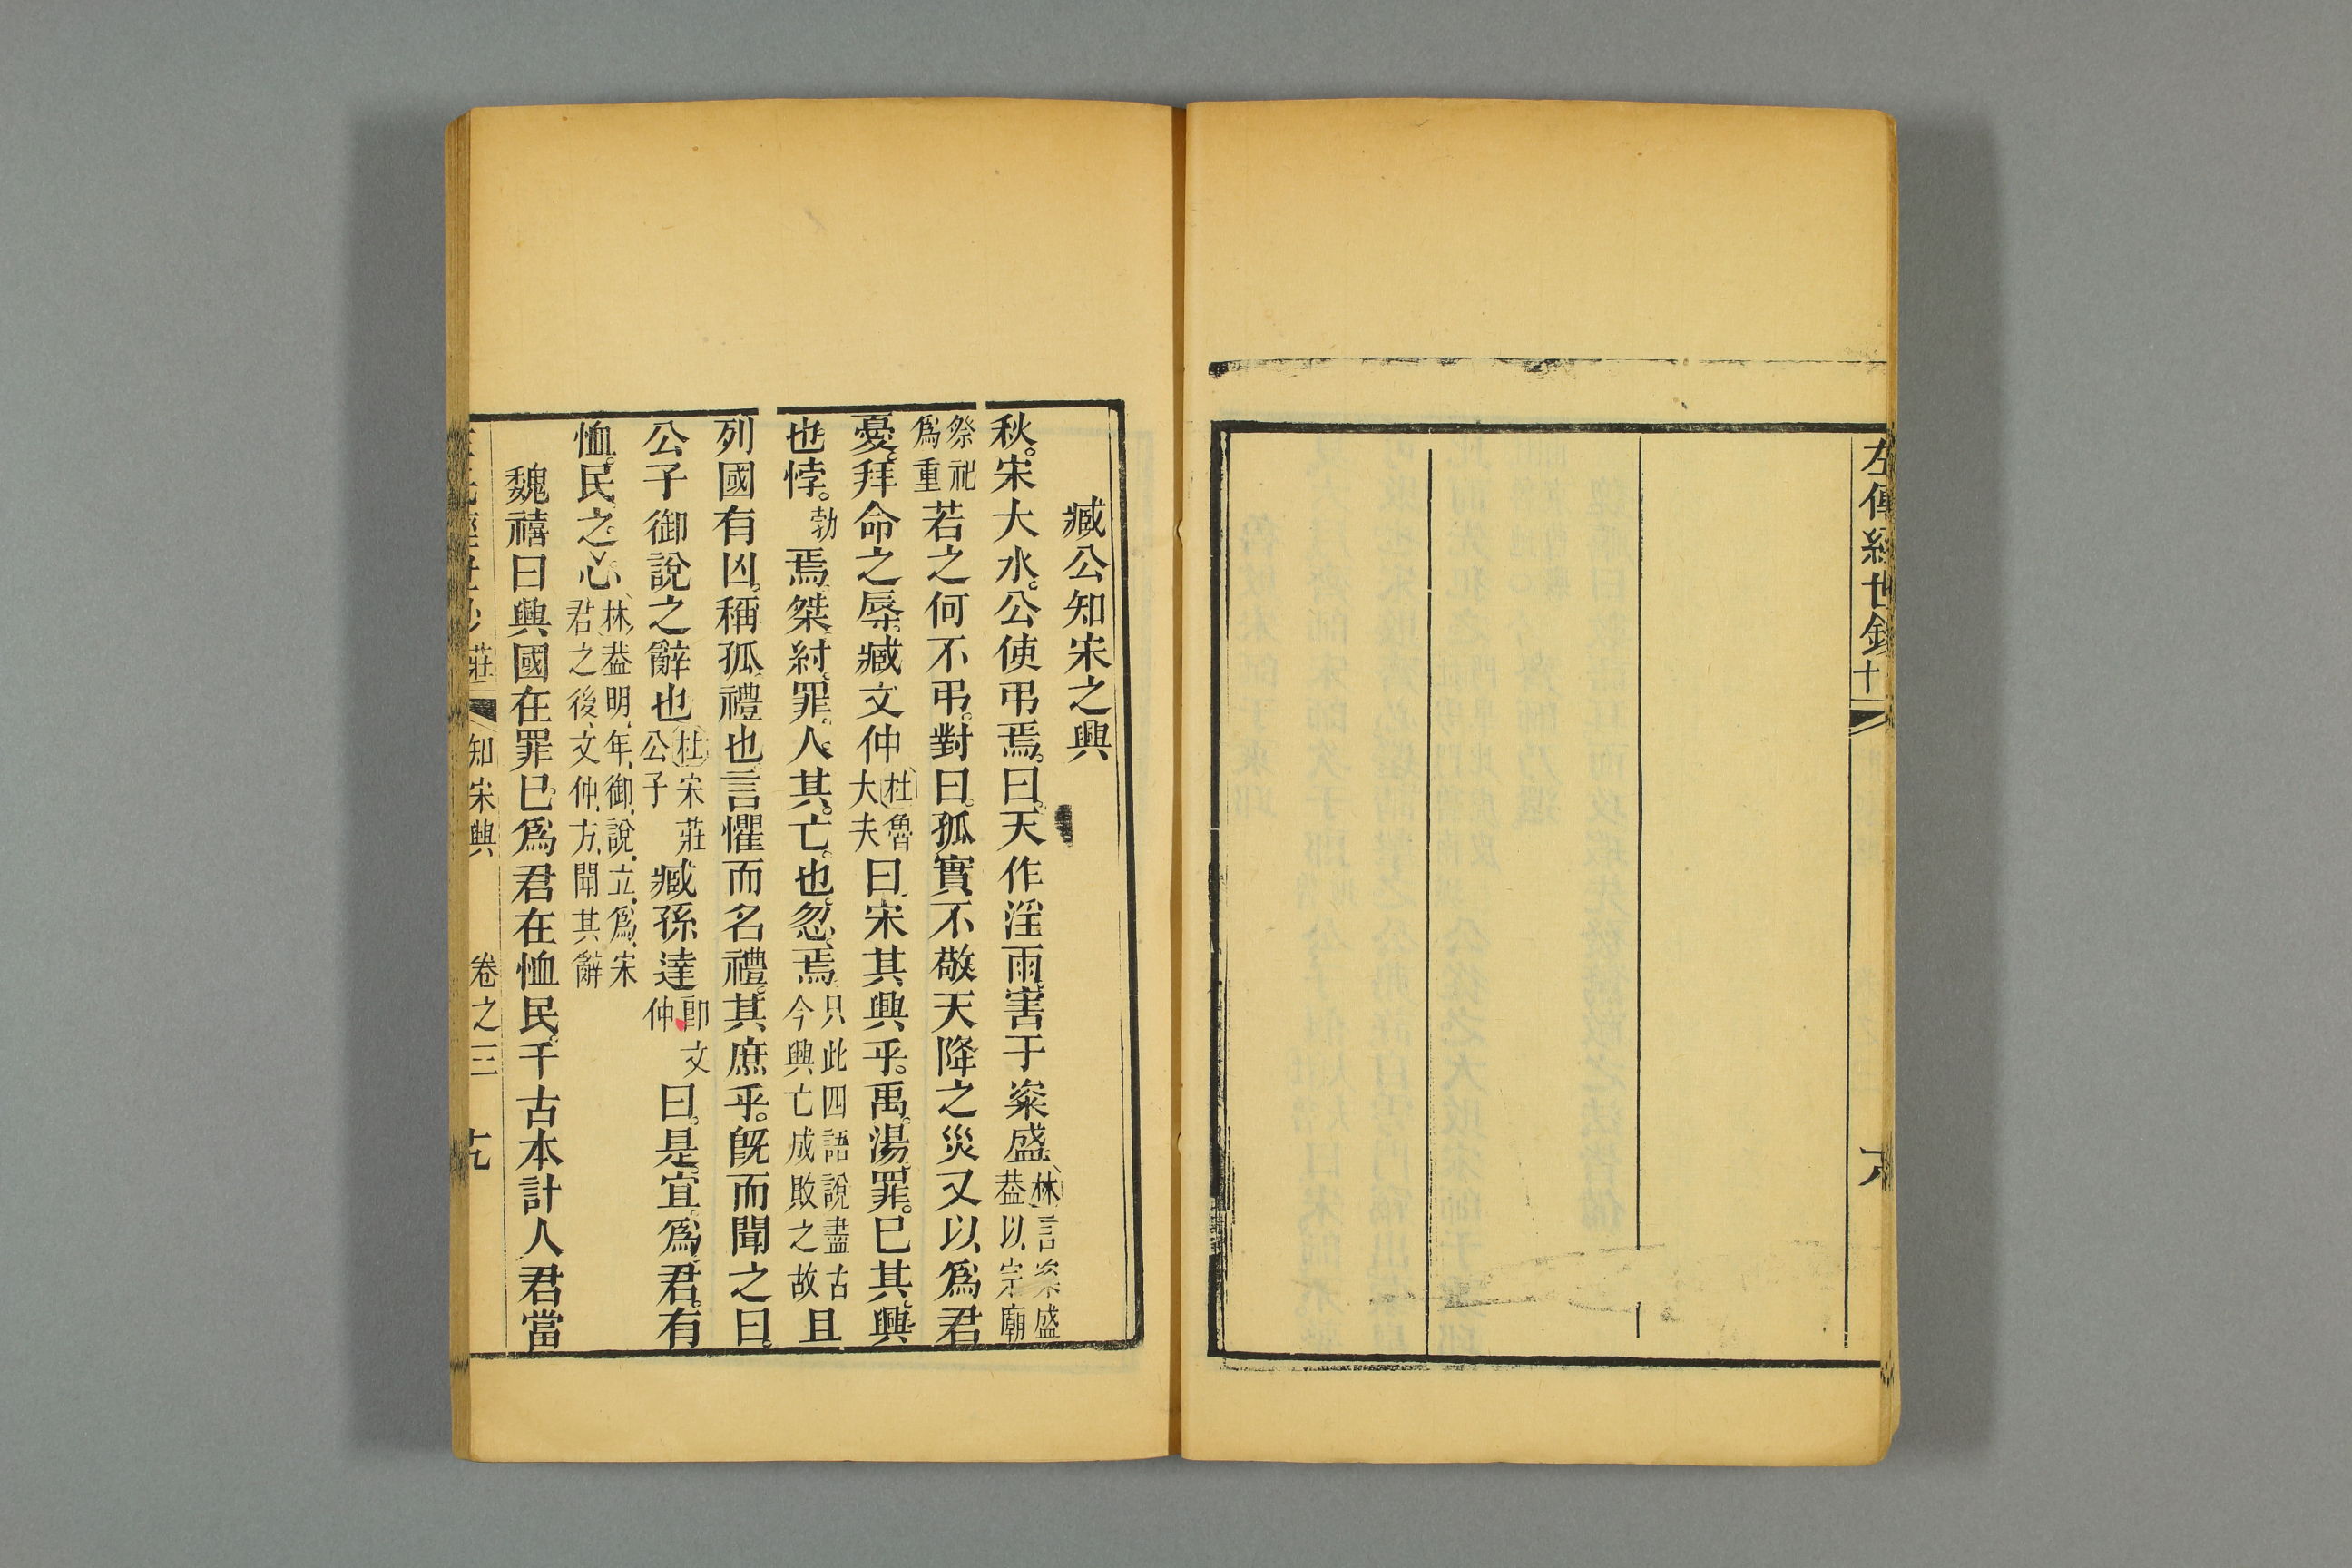 左傳經世鈔
臧公知宋之興
秋宋大水公使弔焉曰天作淫雨害于粢盛林言粢盛葢以宗廟
祭祀爲重若之何不弔對曰孤實不敬天降之災又以爲君
憂拜命之辱臧文仲杜魯大夫曰宋其興乎禹湯罪已其興
也悖勃焉桀紂罪人其亡也忽焉只此四語說盡古今興亡成敗之故且
列國有凶稱孤禮也言懼而名禮其庶乎旣而聞之曰
公子御說之辭也杜宋莊公子臧孫達卽文仲曰是宜爲君有
恤民之心林葢明年御說立爲宋君之後文仲方聞其辭
魏禧曰興國在罪已爲君在恤民千古本計人君當
知宋興 卷之三